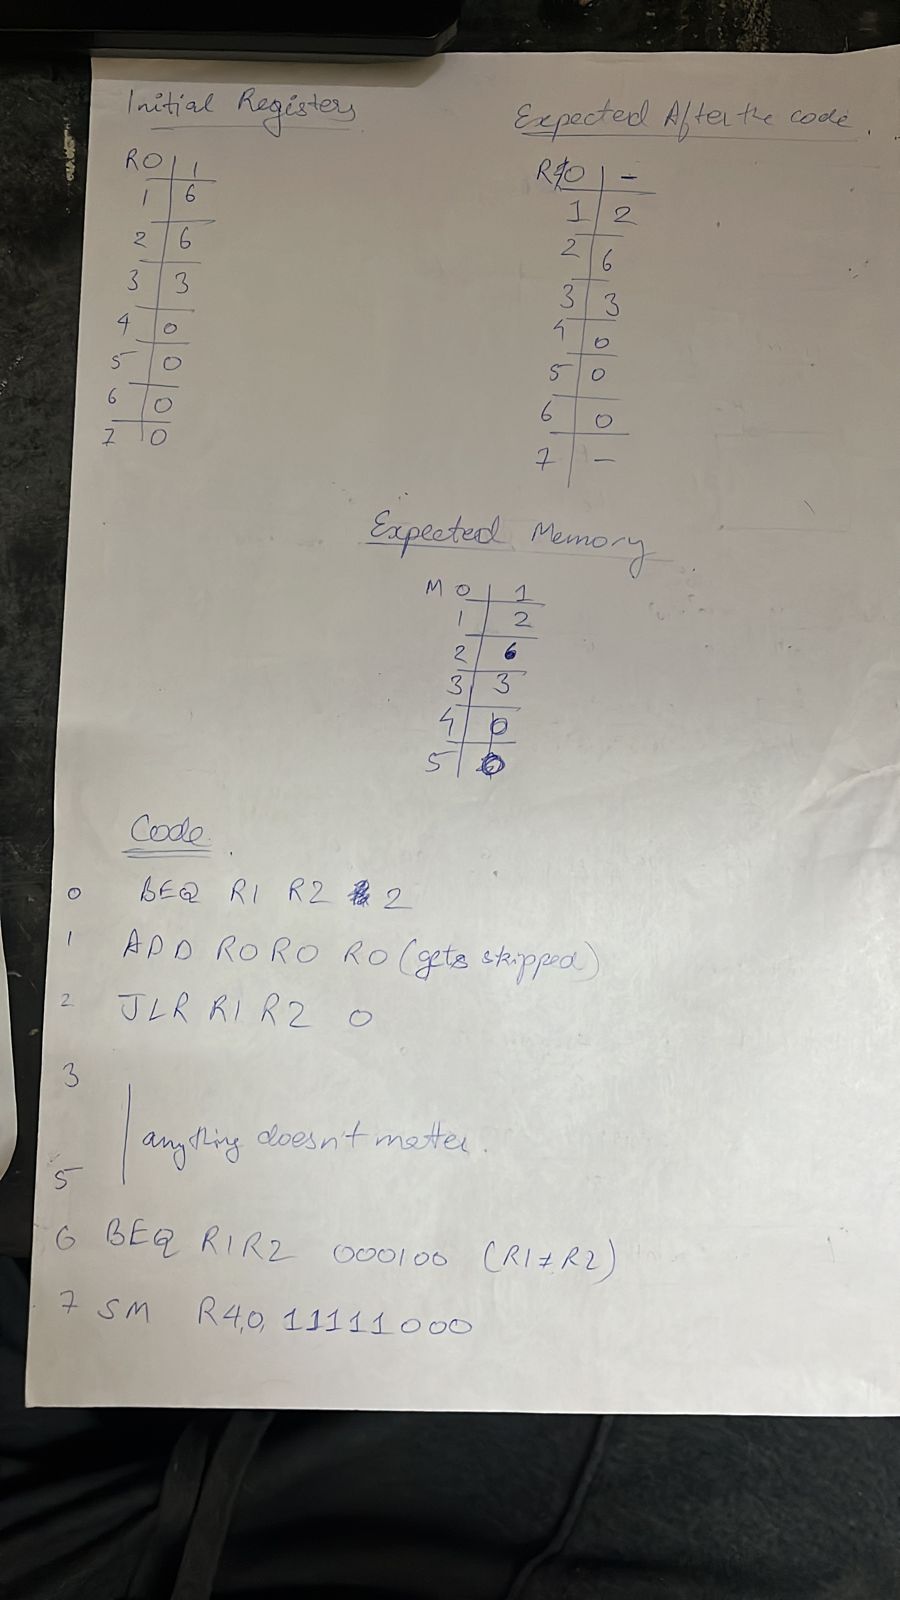 Initial Registers
R0 | 1
1 | 6
2 | 6
3 | 3
4 | 0
5 | 0
6 | 0
7 | 0
Expected After the code.
R0 | -
1 | 2
2 | 6
3 | 3
4 | 0
5 | 0
6 | 0
7 | -
Expected Memory
M 0 | 1
1 | 2
2 | 6
3 | 3
4 | 0
5 | 0
Code
0 BEQ R1 R2 2
1 ADD R0 R0 R0 (gets skipped)
2 JLR R1 R2 0
3
anything doesn't matter.
5
6 BEQ R1 R2 000100 (R1≠R2)
7 SM R4,0, 11111000